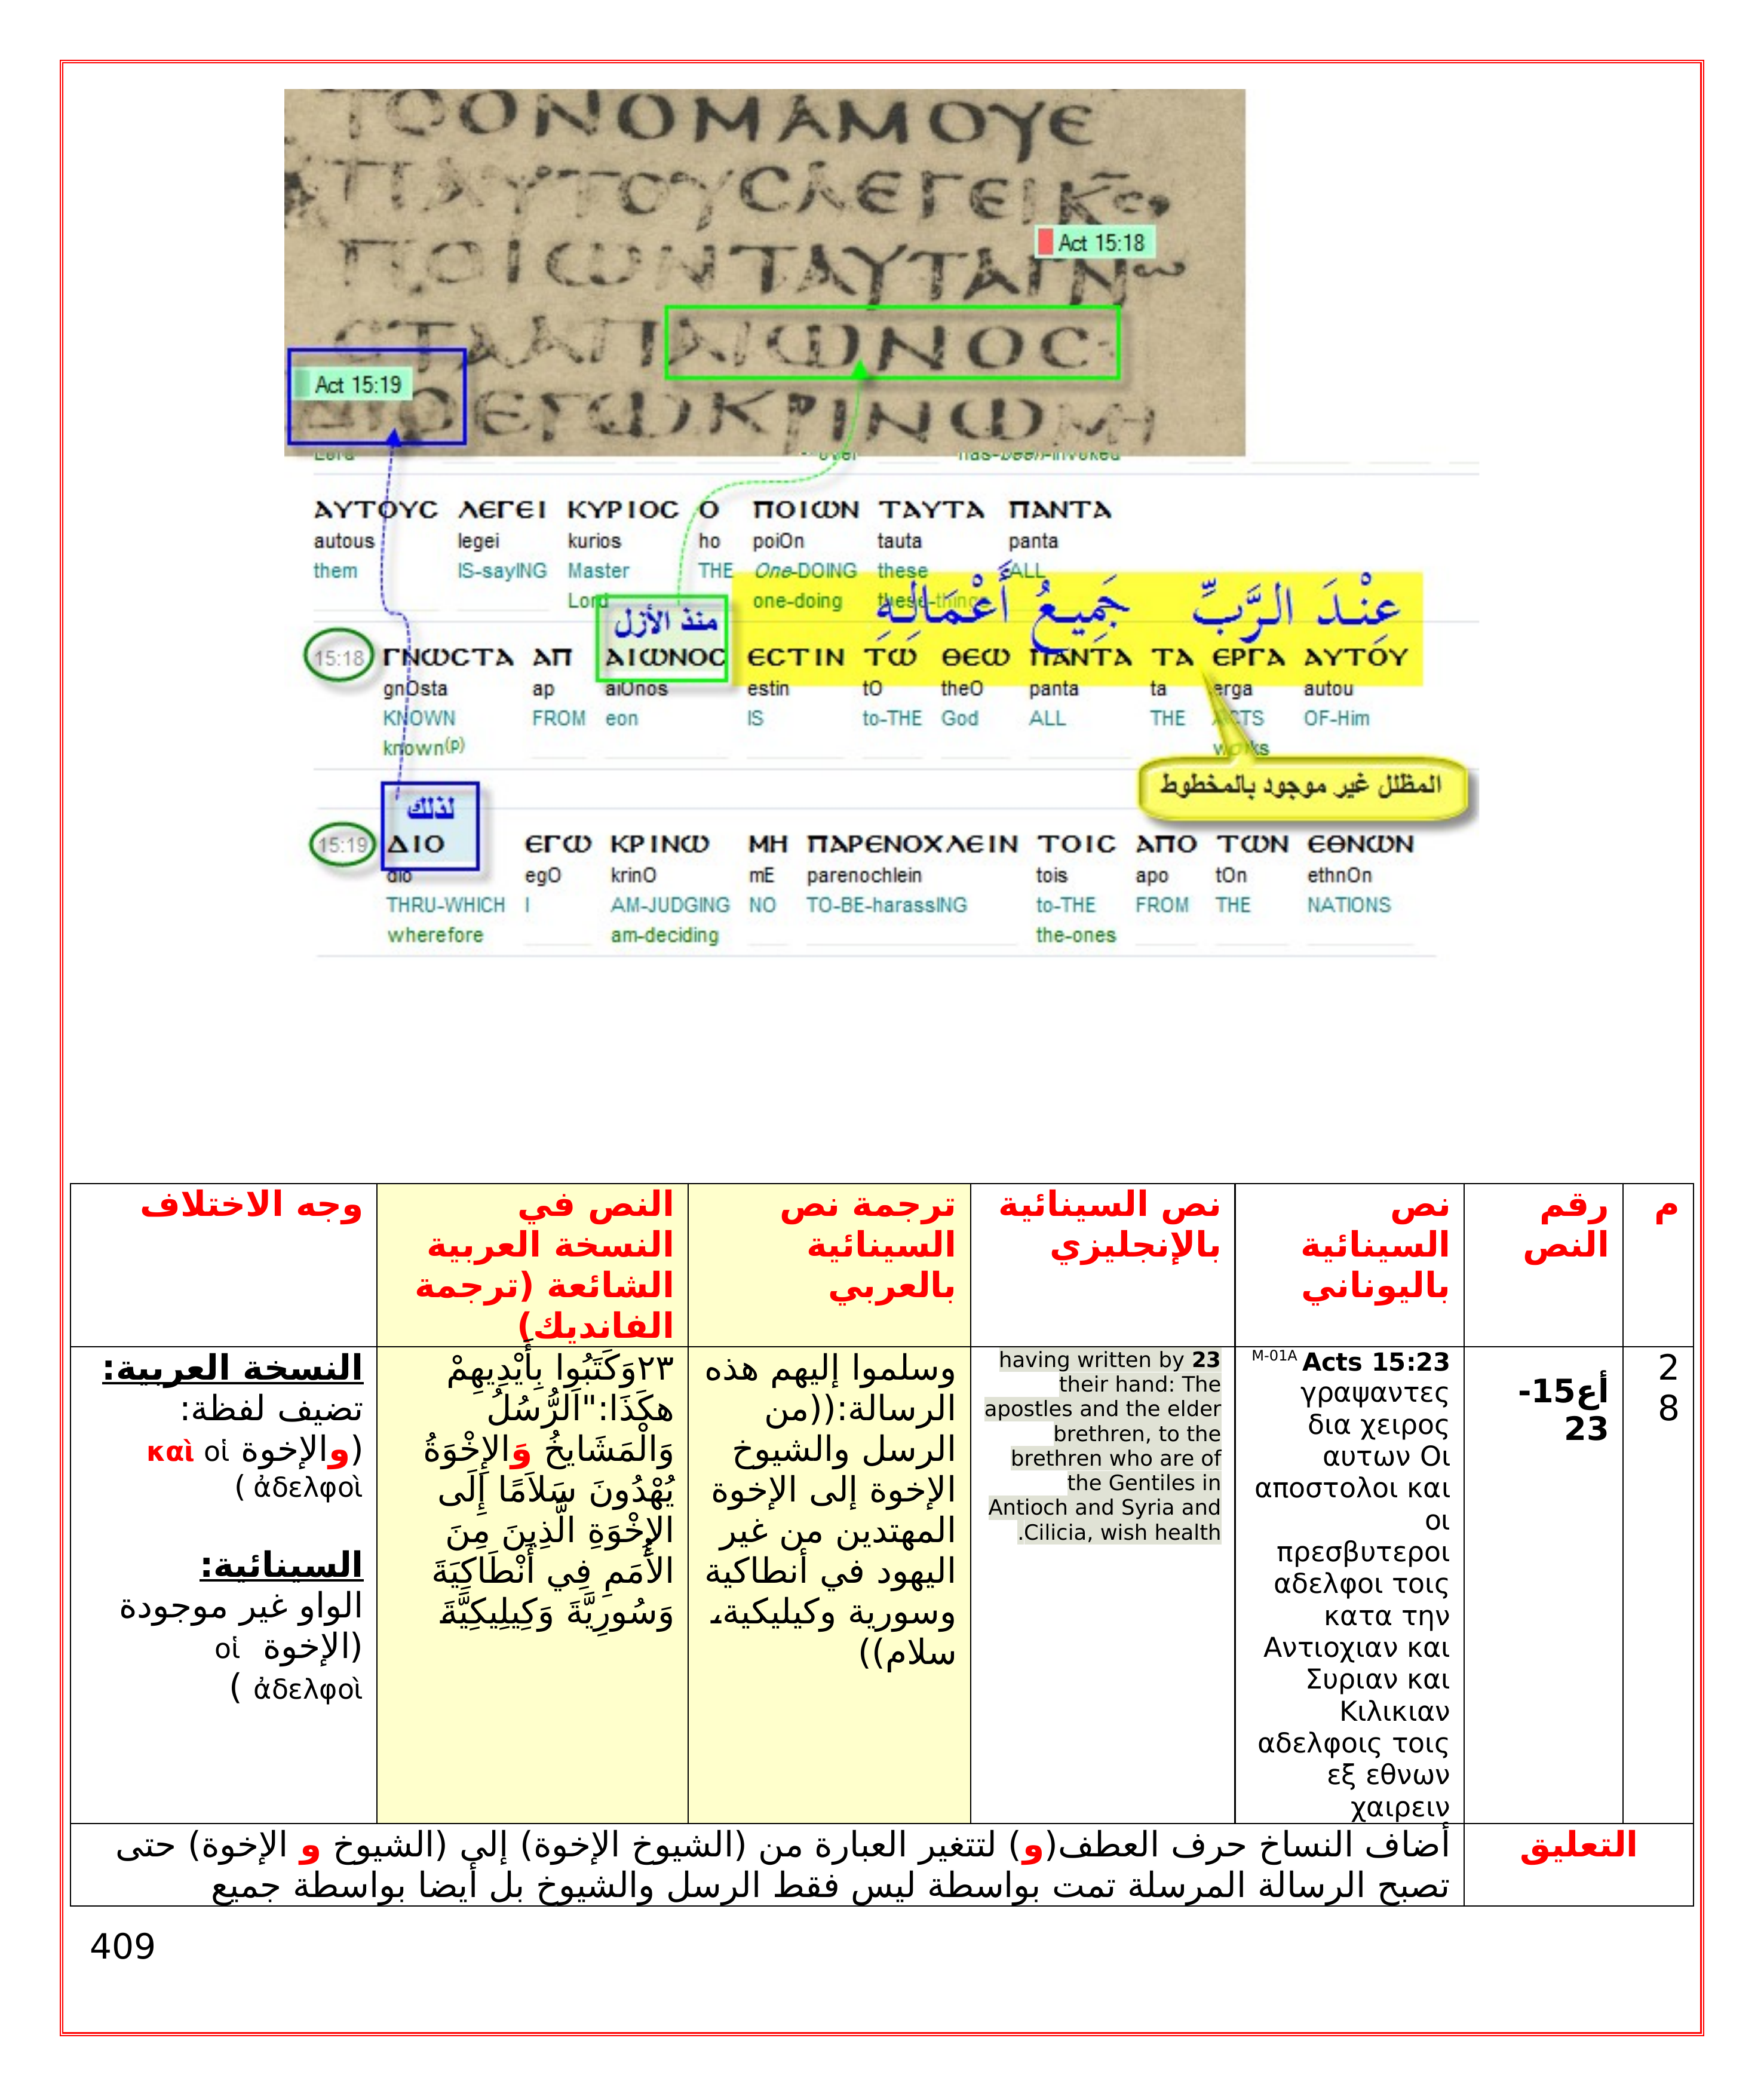 ΤΟΟΝΟΜΑΜΟΥΕ
ΠΑΥΤΟΥϹΛΕΓΕΙΚϹ
Act 15:18
ΠΟΙΩΝΤΑΥΤΑΓΝω
ϹΤΑΑΠΑΙΩΝΟϹ
Act 15:19
ΔΙΟΕΓΩΚΡΙΝΩΜΗ
ΑΥΤΟΥϹ ΛΕΓΕΙ ΚΥΡΙΟϹ Ο ΠΟΙΩΝ ΤΑΥΤΑ ΠΑΝΤΑ
autous legei kurios ho poiOn tauta panta
them IS-sayING Master THE One-DOING these ALL
Lord one-doing these-things
منذ الأزل عِنْدَ الرَّبِّ جَمِيعُ أَعْمَالِهِ
15:18 ΓΝΩϹΤΑ ΑΠ ΑΙΩΝΟϹ ΕϹΤΙΝ ΤΩ ΘΕΩ ΠΑΝΤΑ ΤΑ ΕΡΓΑ ΑΥΤΟΥ
gnOsta ap aiOnos estin tO theO panta ta erga autou
KNOWN FROM eon IS to-THE God ALL THE ACTS OF-Him
known(p) works
المظلل غير موجود بالمخطوط
لذلك
15:19 ΔΙΟ ΕΓΩ ΚΡΙΝΩ ΜΗ ΠΑΡΕΝΟΧΛΕΙΝ ΤΟΙϹ ΑΠΟ ΤΩΝ ΕΘΝΩΝ
dio egO krinO mE parenochlein tois apo tOn ethnOn
THRU-WHICH I AM-JUDGING NO TO-BE-harassING to-THE FROM THE NATIONS
wherefore am-deciding the-ones
م
رقم
النص
نص
السينائية
باليوناني
نص السينائية
بالإنجليزي
ترجمة نص
السينائية
بالعربي
النص في
النسخة العربية
الشائعة (ترجمة
الفانديك)
وجه الاختلاف
2
8
أع15-
23
M-01A Acts 15:23
γραψαντες
δια χειρος
αυτων Οι
αποστολοι και
οι
πρεσβυτεροι
αδελφοι τοις
κατα την
Αντιοχιαν και
Συριαν και
Κιλικιαν
αδελφοις τοις
εξ εθνων
χαιρειν
having written by 23
their hand: The
apostles and the elder
brethren, to the
brethren who are of
the Gentiles in
Antioch and Syria and
.Cilicia, wish health
وسلموا إليهم هذه
الرسالة:((من
الرسل والشيوخ
الإخوة إلى الإخوة
المهتدين من غير
اليهود في أنطاكية
وسورية وكيليكية،
سلام))
٢٣وَكَتَبُوا بِأَيْدِيهِمْ
هكَذَا:"اَلرُّسُلُ
وَالْمَشَايخُ وَالإِخْوَةُ
يُهْدُونَ سَلاَمًا إِلَى
الإِخْوَةِ الَّذِينَ مِنَ
الأُمَمِ فِي أَنْطَاكِيَةَ
وَسُورِيَّةَ وَكِيلِيكِيَّةَ
النسخة العربية:
تضيف لفظة:
(والإخوة καὶ οἱ
ἀδελφοὶ )
السينائية:
الواو غير موجودة
(الإخوة οἱ
ἀδελφοὶ )
التعليق
أضاف النساخ حرف العطف(و) لتتغير العبارة من (الشيوخ الإخوة) إلى (الشيوخ و الإخوة) حتى
تصبح الرسالة المرسلة تمت بواسطة ليس فقط الرسل والشيوخ بل أيضا بواسطة جميع
409